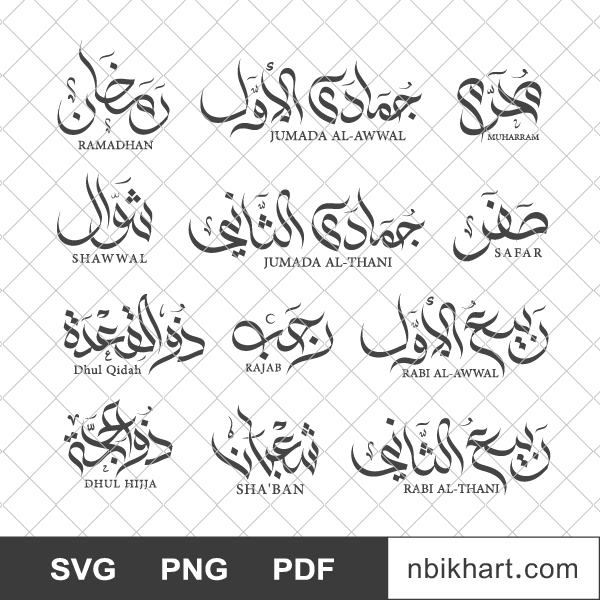 رمضان
RAMADHAN
جُمَادَى الأَوَّل
JUMADA AL-AWWAL
مُحَرَّم
MUHARRAM
شَوَّال
SHAWWAL
جُمَادَى الثَّانِي
JUMADA AL-THANI
صَفَر
SAFAR
ذُو القَعْدَة
Dhul Qidah
رَجَب
RAJAB
رَبِيع الأَوَّل
RABI AL-AWWAL
ذُو الحِجَّة
DHUL HIJJA
شَعْبَان
SHA'BAN
رَبِيع الثَّانِي
RABI AL-THANI
SVG PNG PDF nbikhart.com